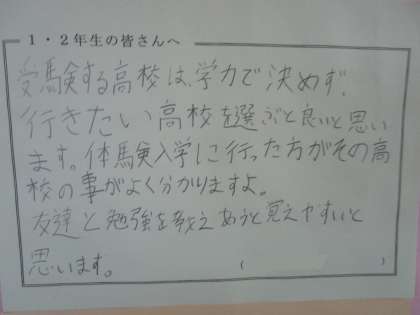 1・2年生の皆さんへ
受験する高校は、学力で決めず、
行きたい高校を選ぶと良いと思い
ます。体験入学に行った方がその高
校の事がよく分かりますよ。
友達と勉強を教えあうと覚えやすいと
思います。
(　　　　　)